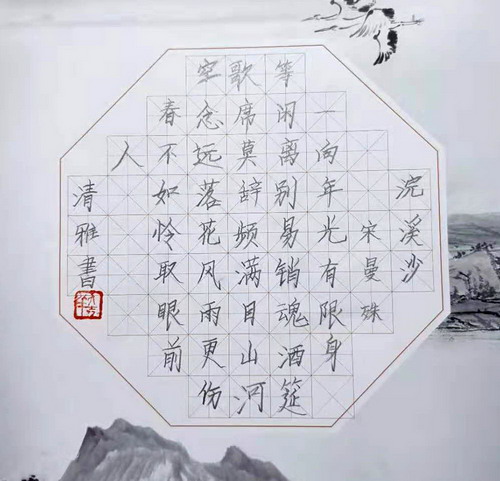 浣溪沙
宋曼殊
一向年光有限身
等闲离别易销魂酒筵
歌席莫辞频满目山河
空念远落花风雨更伤
春不如怜取眼前
人
清雅書